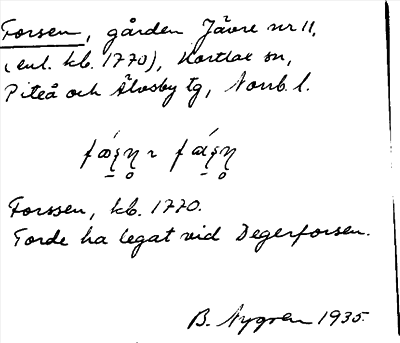 Forsen, gården Jävre nr 11,
(enl. kb. 1770), Hortlax sn,
Piteå och Älvsby tg, Norrb. l.
Forssen, kb. 1770.
Torde ha legat vid Degerforsen.
B. Nygren 1935.